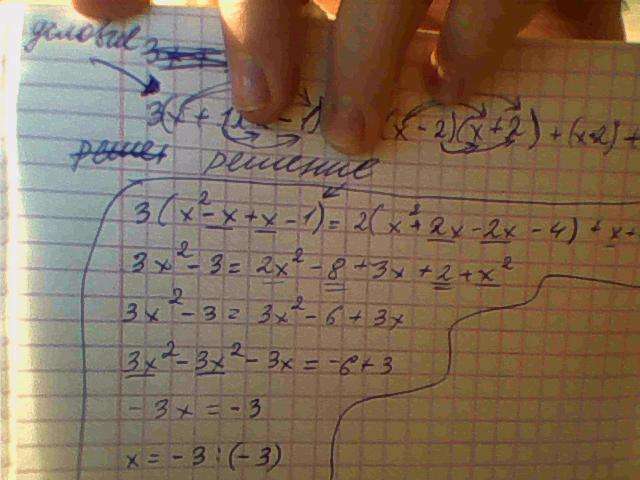 условие
3(x + 1 - 1) (x - 2)(x + 2) + (x-2) +
решение
3(x² - x + x - 1) = 2(x² + 2x - 2x - 4) + x +
3x² - 3 = 2x² - 8 + 3x + 2 + x²
3x² - 3 = 3x² - 6 + 3x
3x² - 3x² - 3x = -6 + 3
- 3x = - 3
x = - 3 : (- 3)